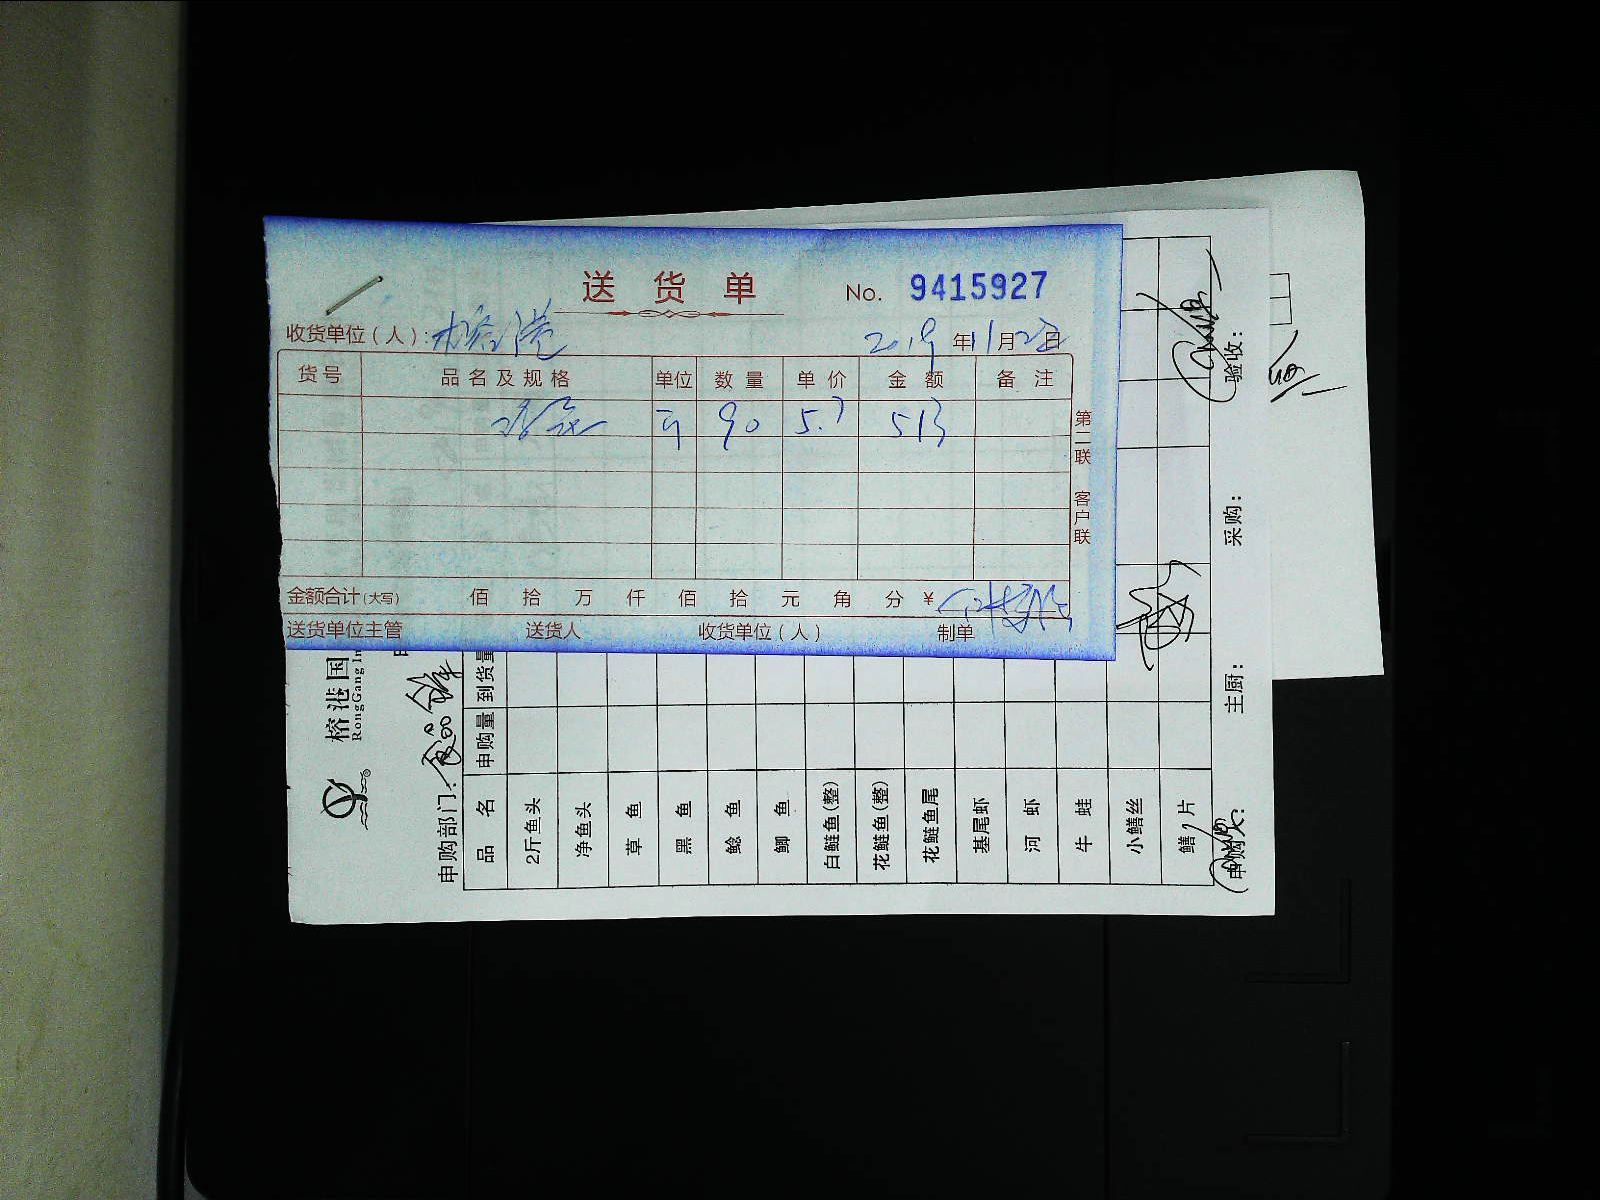 送货单
No. 9415927
收货单位（人）：榕港
2019年11月22日
货号 品名及规格 单位 数量 单价 金额 备注
斤 90 5.7 513
第二联 客户联
金额合计(大写) 佰 拾 万 仟 佰 拾 元 角 分 ¥
送货单位主管 送货人 收货单位（人） 制单
榕港国
RongGang In
申购部门：
品名 申购量 到货量
2斤鱼头
净鱼头
草鱼
黑鱼
鲶鱼
鲫鱼
白鲢鱼(整)
花鲢鱼(整)
花鲢鱼尾
基尾虾
河虾
牛蛙
小鳝丝
鳝片
主厨： 采购： 验收：